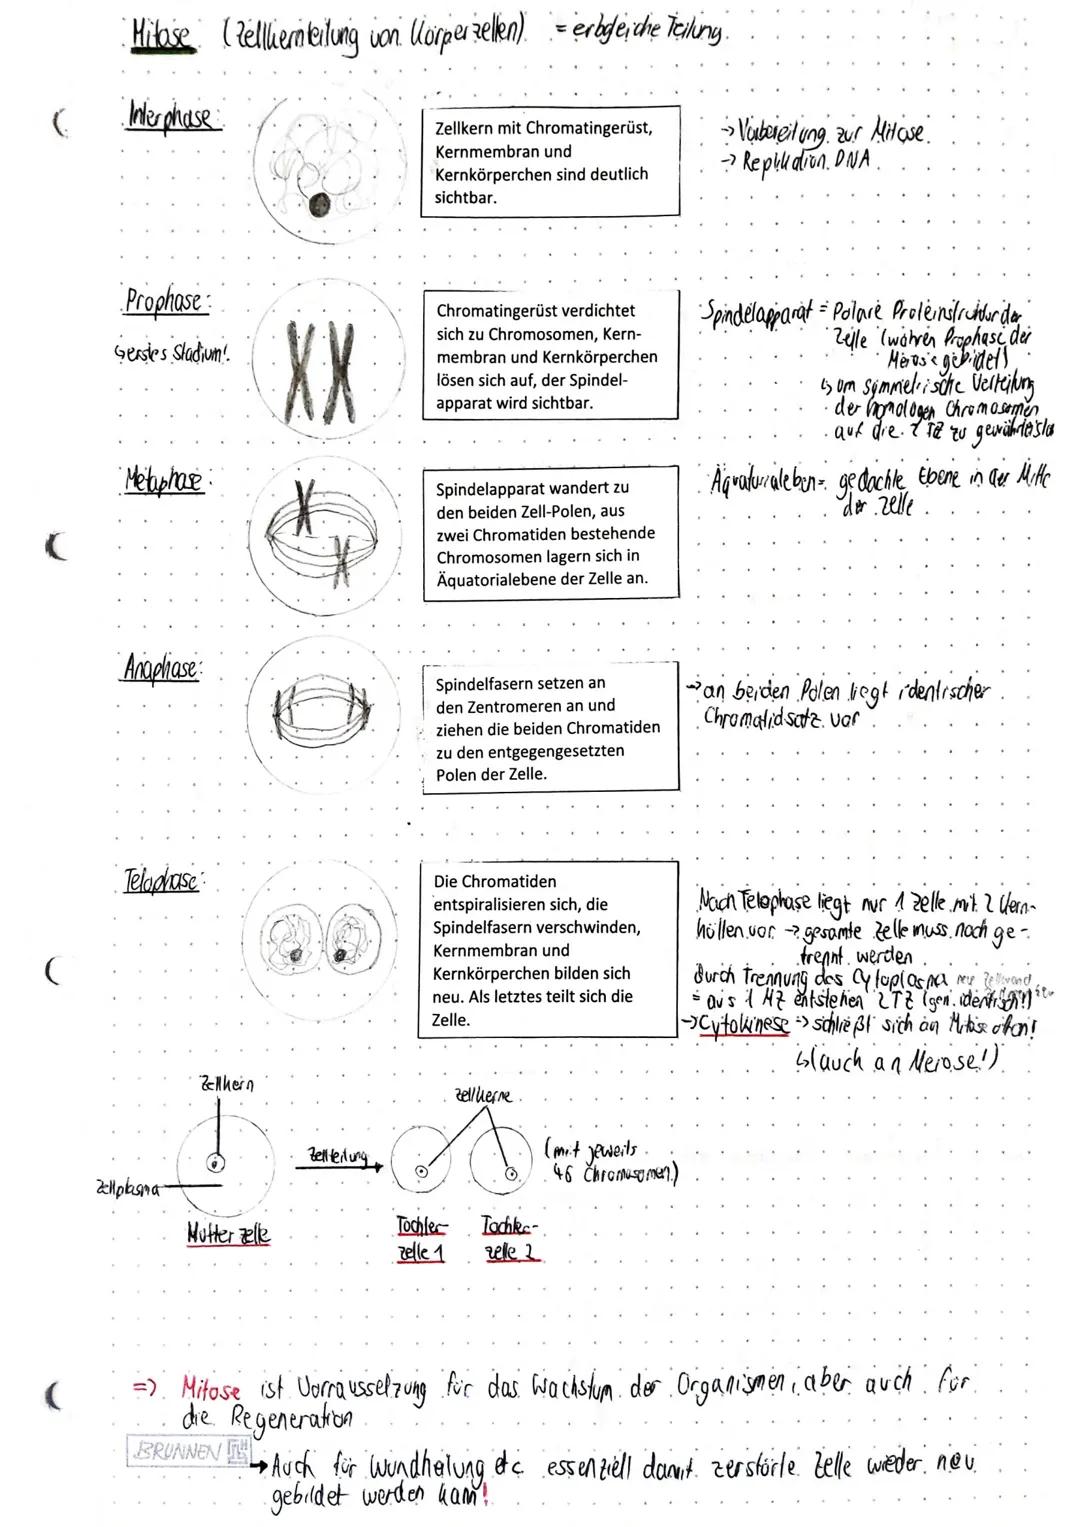 Mitose (Zellkernteilung von Körperzellen) = erbgleiche Teilung
Interphase:
Zellkern mit Chromatingerüst,
Kernmembran und
Kernkörperchen sind deutlich
sichtbar.
→ Vorbereitung zur Mitose
→ Replikation DNA
Prophase:
↳ erstes Stadium!
Chromatingerüst verdichtet
sich zu Chromosomen, Kern-
membran und Kernkörperchen
lösen sich auf, der Spindel-
apparat wird sichtbar.
Spindelapparat = Polare Proteinstruktur der
Zelle (währen Prophase der
Meiose gebildet)
↳ um symmetrische Verteilung
der homologen Chromosomen
auf die 2 TZ zu gewährleisten
Metaphase:
Spindelapparat wandert zu
den beiden Zell-Polen, aus
zwei Chromatiden bestehende
Chromosomen lagern sich in
Äquatorialebene der Zelle an.
Äquatorialeben = gedachte Ebene in der Mitte
der Zelle
Anaphase:
Spindelfasern setzen an
den Zentromeren an und
ziehen die beiden Chromatiden
zu den entgegengesetzten
Polen der Zelle.
→ an beiden Polen liegt identischer
Chromatidsatz vor
Telophase:
Die Chromatiden
entspiralisieren sich, die
Spindelfasern verschwinden,
Kernmembran und
Kernkörperchen bilden sich
neu. Als letztes teilt sich die
Zelle.
Nach Telophase liegt nur 1 Zelle mit 2 Kern-
hüllen vor → gesamte Zelle muss noch ge-
trennt werden
durch Trennung des Cytoplasma neue Zellwand
= aus 1 MZ entstehen 2 TZ (gen. identisch!)
→ Cytokinese => schließt sich an Mitose an!
↳ (auch an Meiose!)
Zellkern
Zellkerne
Zellteilung
(mit jeweils
46 Chromosomen)
Zellplasma
Mutterzelle
Tochter-
zelle 1
Tochter-
zelle 2
=> Mitose ist Vorraussetzung für das Wachstum der Organismen, aber auch für
die Regeneration
BRUNNEN
→ Auch für Wundheilung etc essenziell damit zerstörte Zelle wieder neu
gebildet werden kann!